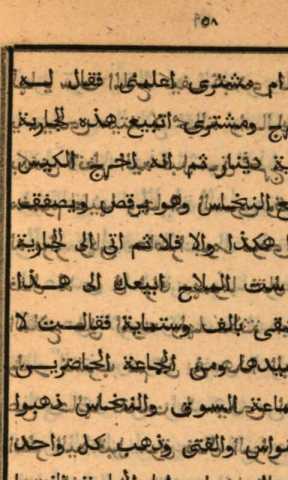 ٢٥٨
ام مشترى اعلمنى فقال له
ومشترى اتبيع هذه الجارية
ية دينار ثم انه اخرج الكيس
ع النخاس وهو يرقص ويصفق
هكذا والا فلا ثم اتى الى الجارية
ست الملاح ابيعك الى هذا
بقى بالف وستماية فقالت لا
بيدها ومن الجماعة الحاضرين
جماعة السوق والنخاس ذهبوا
والفتى وذهب كل واحد